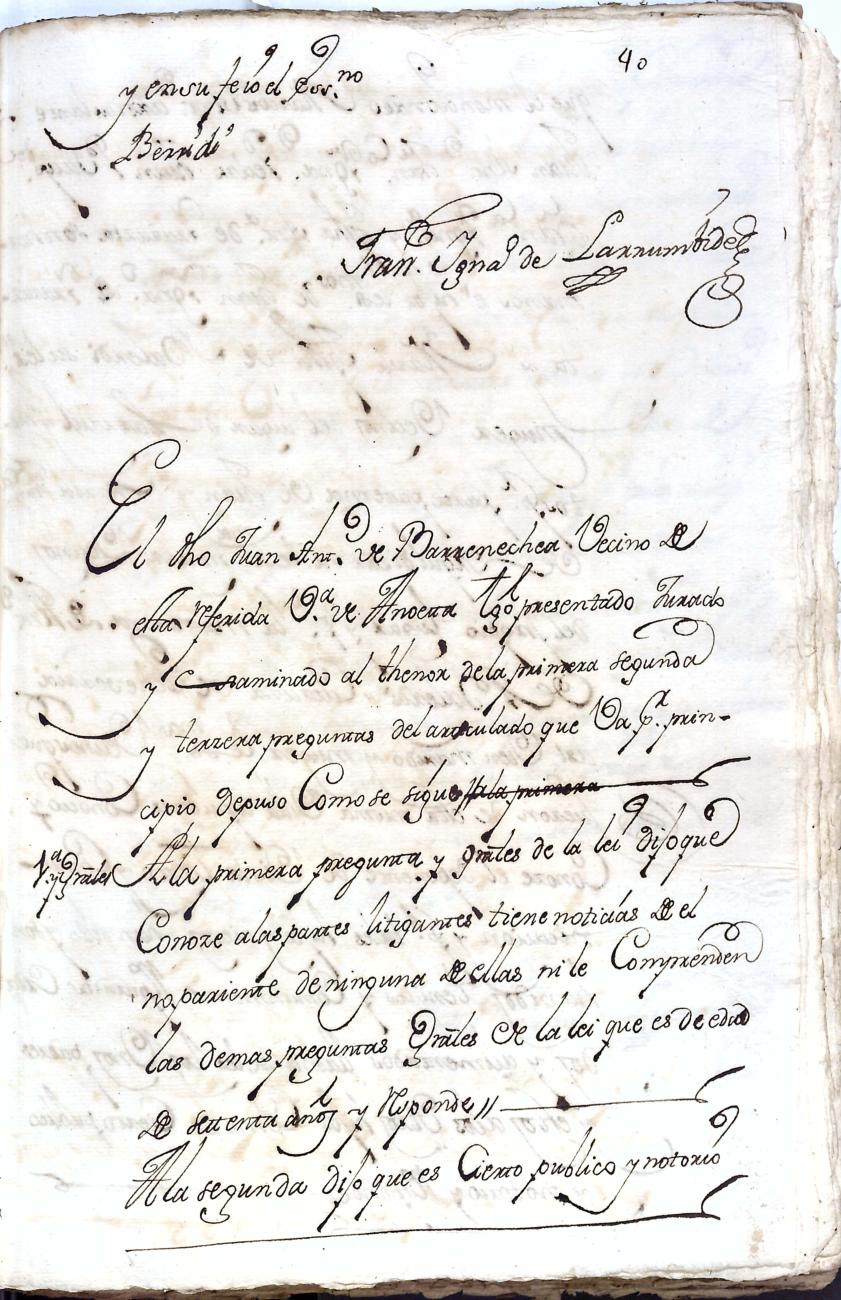 40
y en su fe io el Ess.no
Franco. Ignao de Larrumbide
El dho Juan Anto. de Barrenechea Vecino de
esta referida Va. de Anoeta tgo presentado Jurado
y Examinado al thenor de la primera segunda
y terzera preguntas del articulado que Va pr. prin-
cipio depuso Como se sigue // a la primera
1a. y Grales A la primera pregunta y grales de la lei dijo que
Conoze a las partes litigantes tiene noticias de el
no pariente de ninguna de ellas ni le Comprenden
las demas preguntas Grales de la lei que es de edad
de settenta años y responde //
A la segunda dijo que es Cierto publico y notorio